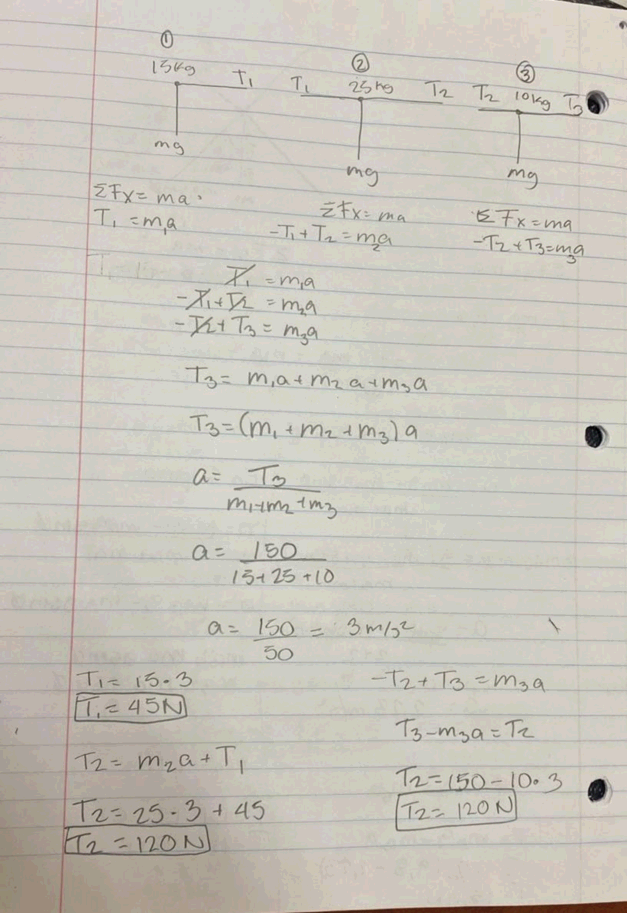 ① ② ③
15kg T₁ T₁ 25kg T₂ T₂ 10kg T₃
mg mg mg
ΣFx = ma ΣFx = ma ΣFx = ma
T₁ = m₁a -T₁ + T₂ = m₂a -T₂ + T₃ = m₃a
T₁ = m₁a
-T₁ + T₂ = m₂a
-T₂ + T₃ = m₃a
T₃ = m₁a + m₂a + m₃a
T₃ = (m₁ + m₂ + m₃) a
a = T₃ / m₁+m₂+m₃
a = 150 / 15+25+10
a = 150 / 50 = 3 m/s²
T₁ = 15·3
T₁ = 45N
T₂ = m₂a + T₁
T₂ = 25·3 + 45
T₂ = 120N
-T₂ + T₃ = m₃a
T₃ - m₃a = T₂
T₂ = 150 - 10·3
T₂ = 120N